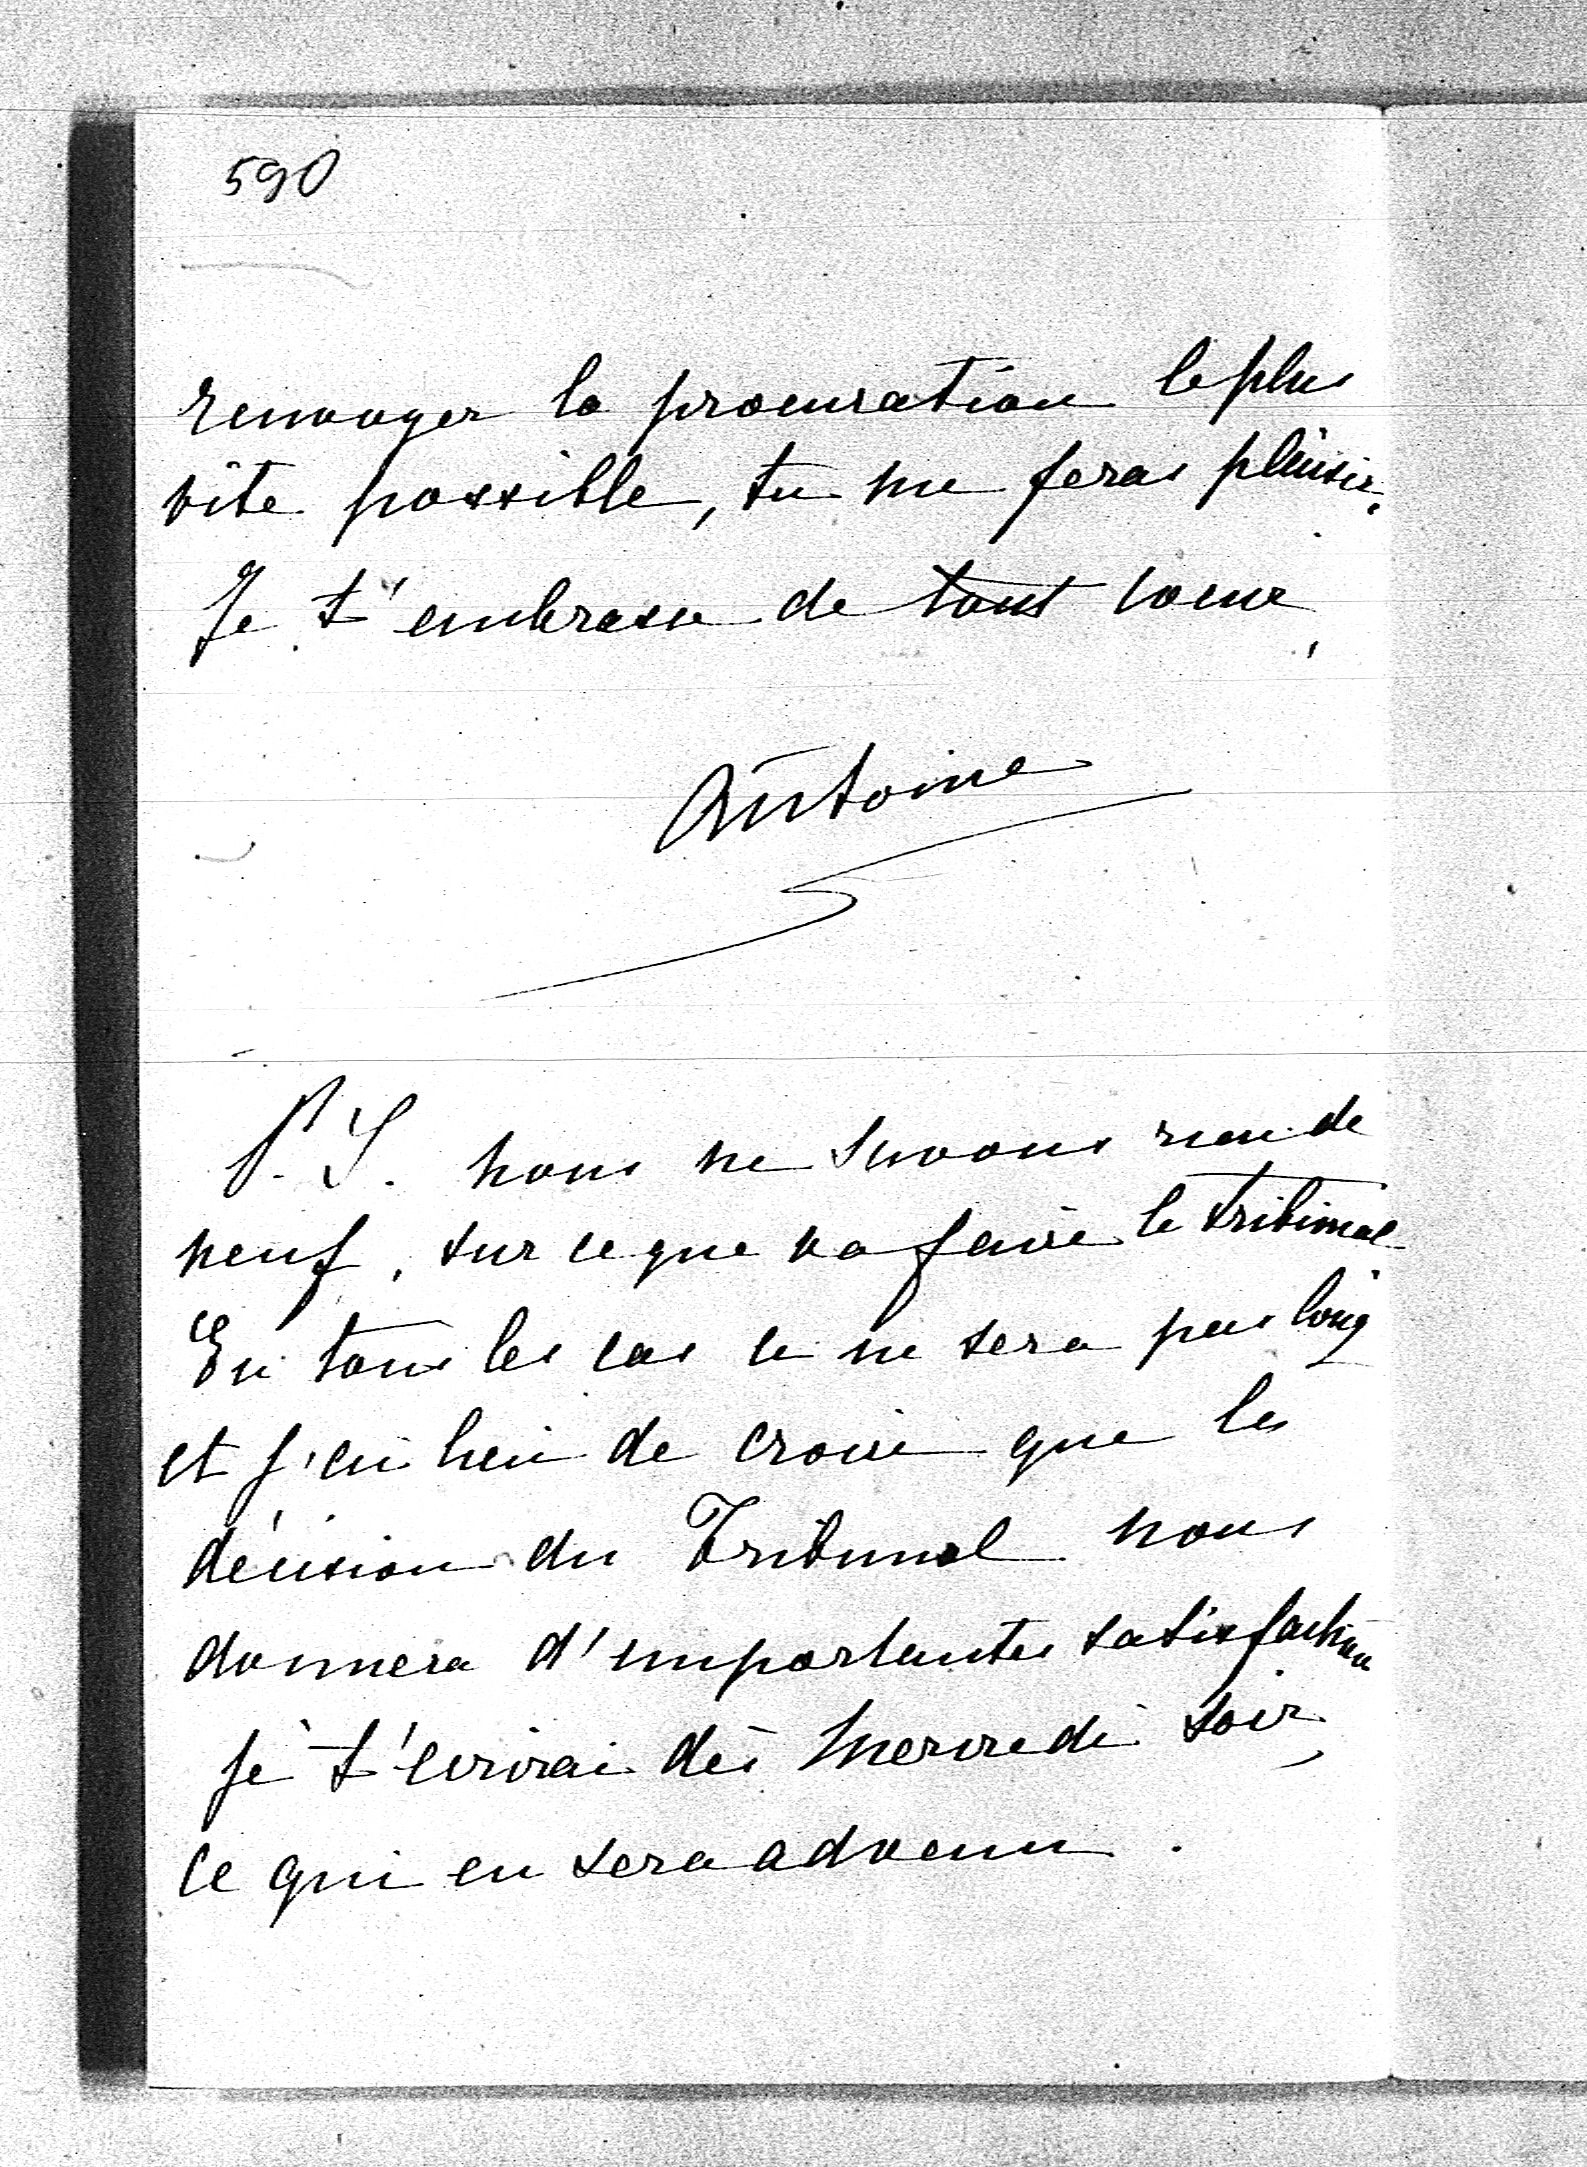 590
renvoyer la procuration le plus
vite possible, tu me feras plaisir.
Je t'embrasse de tout coeur,
Antoine
P.S. nous ne savons rien de
neuf, sur ce que va faire le tribunal
En tous les cas ce ne sera pas long
et j'ai lieu de croire que les
décision du Tribunal nous
donnera d'importantes satisfaction
je t'écrirai dès Mercredi soir
ce qui en sera advenu.